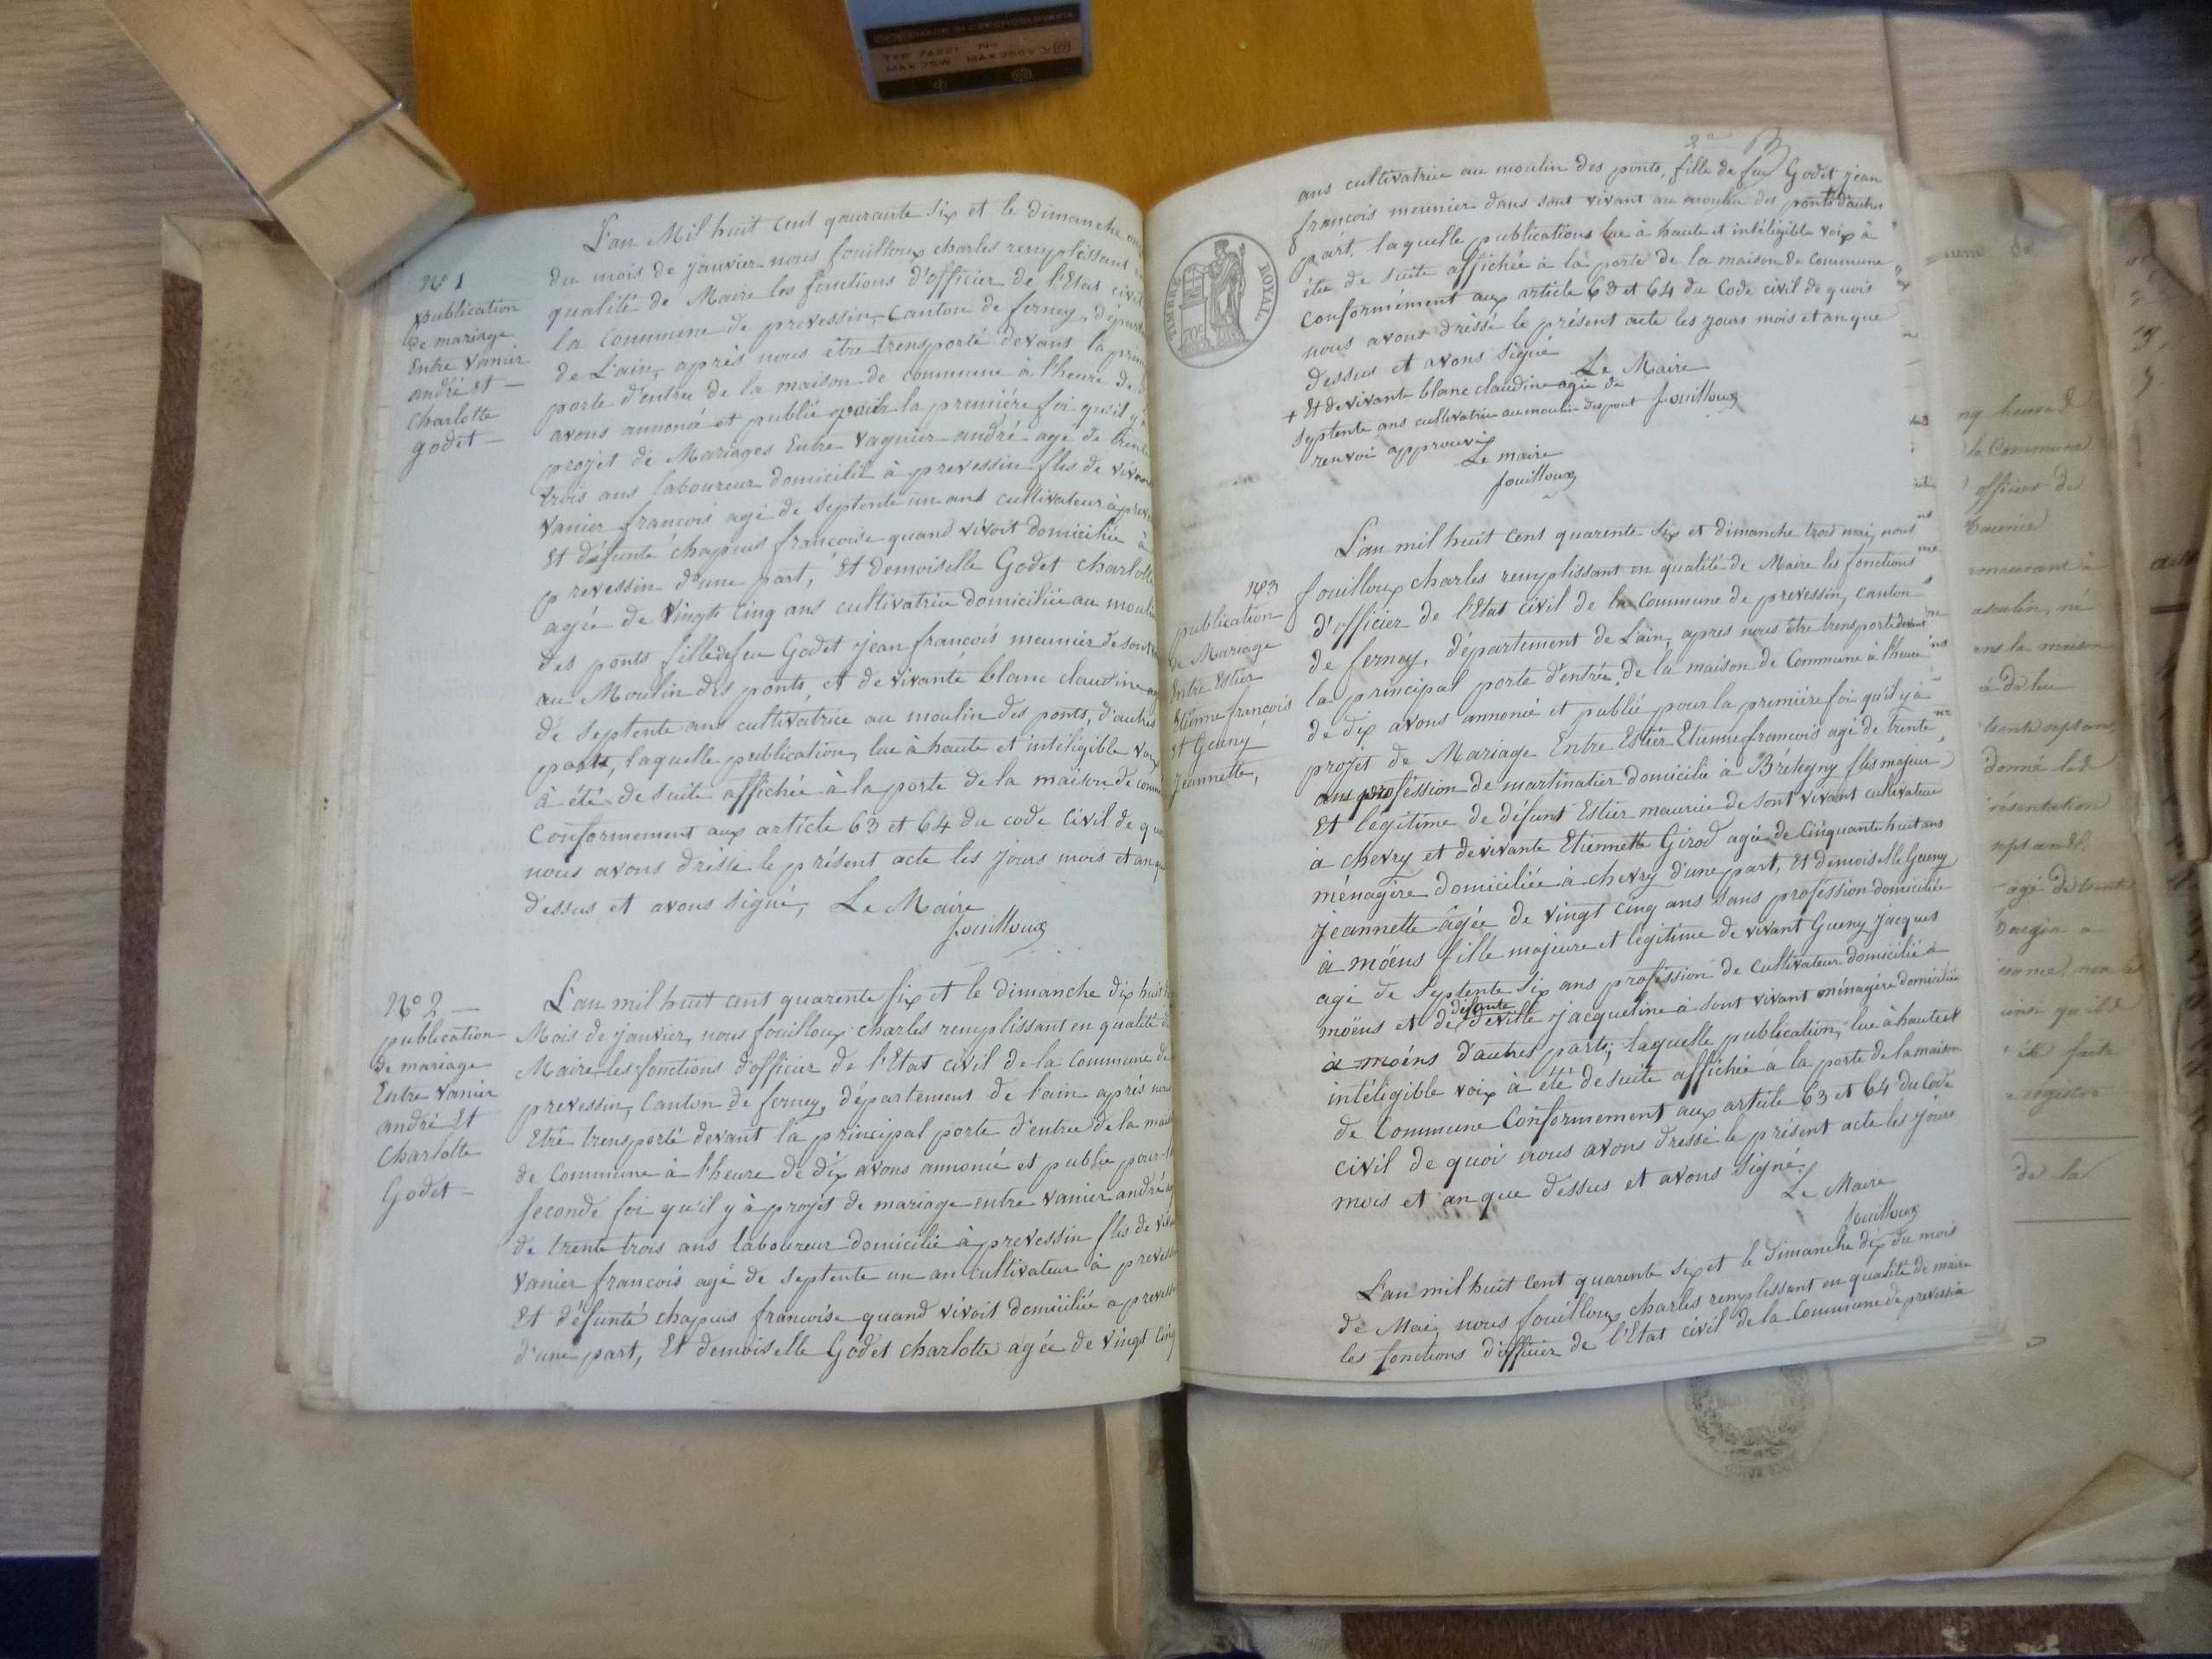 N° 1
publication
de mariage
Entre Vanier
andré et —
Charlotte
godet —
L'an Mil huit cent quarante six et le dimanche
du mois de janvier nous fouilloux charles remplissant
qualité de Maire les fonctions d'officier de l'Etat civil
la commune de prevessin, Canton de ferney,
de L'ain, après nous être trensporté devant la
porte d'entrée de la maison de commune à l'heure de
avons annoncé et publié pour la première foi qu'il y
projet de Mariages Entre Vagnier andré age de trente
trois ans laboureur domicilié à prevessin fils de
Vanier francois agé de septente un ans cultivateur à
Et défunte chapuis francoise quand vivoit domiciliée à
prevessin d'une part, Et demoiselle Godet charlotte
agée de Vingt Cinq ans cultivatrice domiciliée au moulin
des ponts fille de feu Godet jean francois meunier de sont
au Moulin des ponts, et de vivante blanc claudine
de septente ans cultivatrice au moulin des ponts, d'autres
parts, laquelle publication, lue à haute et intéligible
à été de suite affichée à la porte de la maison de
Conformement aux article 63 et 64 du code Civil de
nous avons drissé le présent acte les jours mois et an
dessus et avons signé, Le Maire
fouilloux
N° 2 —
publication
de mariage
Entre Vanier
andré Et
Charlotte
Godet —
L'an mil huit cent quarente six et le dimanche dix huit
Mois de janvier, nous fouilloux charles remplissant en qualité
Maire les fonctions d'officier de l'Etat civil de la Commune de
prevessin, Canton de ferney, département de l'ain après nous
Etre trensporté devant la principal porte d'entrée de la
de Commune à l'heure de dix avons annoncé et publié pour
seconde foi qu'il y à projet de mariage entre Vanier andré
de trente trois ans laboureur domicilié à prevessin fils de
Vanier francois agé de septente un an cultivateur à
Et défunté chapuis francoise quand vivoit domiciliée a
d'une part, Et demoiselle Godet charlotte agée de Vingt Cinq
2e
ans cultivatrice au moulin des ponts, fille de feu Godet jean
francois meunier dans sont vivant au moulin des ponts d'autres
part, laquelle publications lue à haute et intéligible voix à
été de suite affichée à la porte de la maison de Commune
Conformément aux article 63 et 64 du Code civil de quois
nous avons drissé le présent acte les jours mois et an que
dessus et avons signé Le Maire
+ Et de vivante blanc claudine agée de
septente ans cultivatrice au moulin des pont fouilloux
renvoi approuvé
Le maire
fouilloux
TIMBRE ROYAL
N° 3
publication
de Mariage
Entre Estier
Etienne francois
Et Gueny
Jeannette,
L'an mil huit cent quarente six et dimanche trois mai, nous
fouilloux charles remplissant en qualité de Maire les fonctions
d'officier de l'Etat civil de la Commune de prevessin, canton
de ferney, département de L'ain, apres nous être trensporté devant
la principal porte d'entrée de la maison de Commune à l'heure
de dix avons annoncé et publié pour la première foi qu'il y à
projet de Mariage Entre Estier Etienne francois agé de trente
ans profession de martinatier domicilié à Brétegny fils majeur
Et légitime de défunt Estier maurice de sont vivant cultivateur
à chevry et de vivante Etiennette Girod agée de Cinquante huit ans
ménagère domiciliée à chevry d'une part, Et demoiselle Gueny
jeannette agée de Vingt cinq ans sans profession domiciliée
à möens fille majeure et légitime de vivant Gueny jacques
agé de septente six ans profession de cultivateur domicilié à
möens et de défunte deville jacqueline à sont vivant ménagère domiciliée
à moëns d'autres parts, laquelle publication, lue à haute et
intéligible voix à été de suite affichée à la porte de la maison
de Commune Conformement aux article 63 et 64 du Code
civil de quoi nous avons dressé le présent acte les jours
mois et an que dessus et avons signé.
Le Maire
fouilloux
L'an mil huit cent quarente six et le dimanche dix du mois
de Mai, nous fouilloux charles remplissant en qualité de maire
les fonctions d'officier de l'Etat civil de la Commune de prevessin
la Commune
officier de
la maison
trente sept ans
donné le d
présentation
agé de trente
ainsi qu'il
été faite
registre
de la